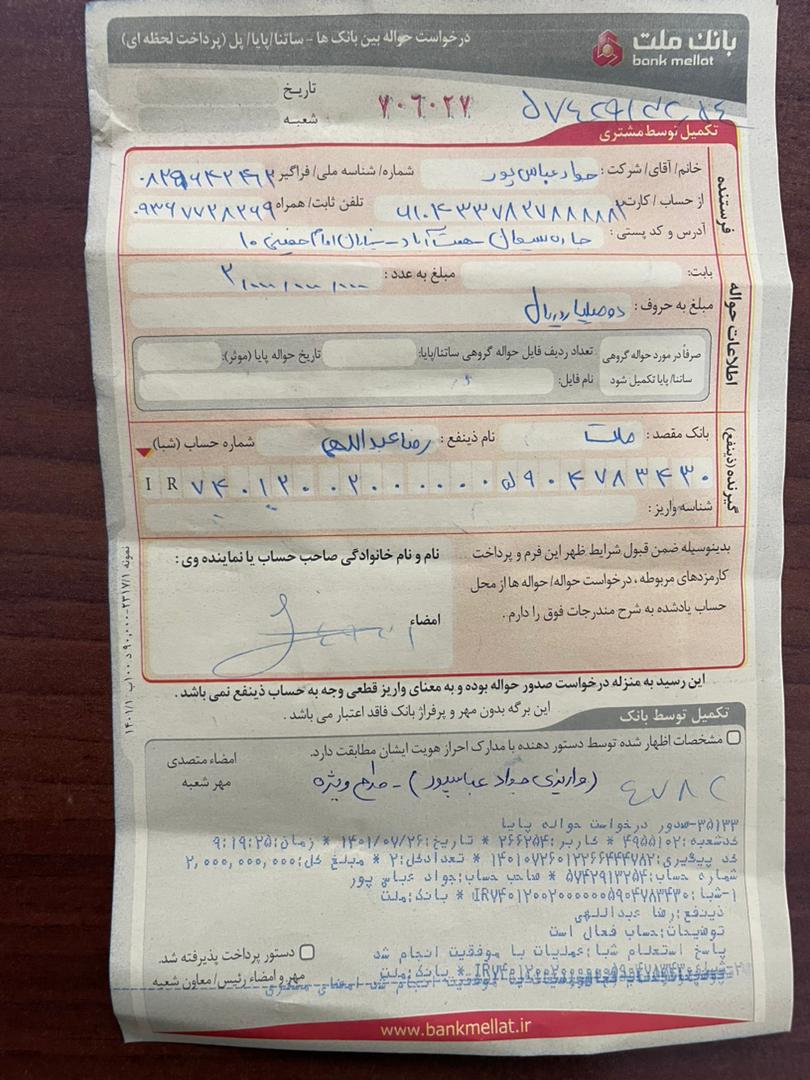 بانک ملت
bank mellat
درخواست حواله بین بانک ها - ساتنا/پایا/پل (پرداخت لحظه ای)
تاریخ
شعبه
۷۰۶۰۲۷
تکمیل توسط مشتری
فرستنده
خانم/آقای/شرکت: جواد عباس پور شماره/شناسه ملی/فراگیر
از حساب/کارت تلفن ثابت/همراه ۰۹۳۶۷۷۳۸۲۶۹
آدرس و کد پستی:
اطلاعات حواله
بابت: مبلغ به عدد: ۲/۰۰۰/۰۰۰/۰۰۰
مبلغ به حروف: دو میلیارد ریال
صرفاً در مورد حواله گروهی ساتنا/پایا تکمیل شود
تعداد ردیف فایل حواله گروهی ساتنا/پایا: تاریخ حواله پایا (موثر):
نام فایل:
گیرنده (ذینفع)
بانک مقصد: ملت نام ذینفع: رضا عبداللهی شماره حساب (شبا)
IR ۷۴۰۱۲۰۰۲۰۰۰۰۰۰۵۹۰۴۷۸۳۴۳۰
شناسه واریز:
بدینوسیله ضمن قبول شرایط ظهر این فرم و پرداخت
کارمزدهای مربوطه، درخواست حواله/حواله ها از محل
حساب یادشده به شرح مندرجات فوق را دارم.
نام و نام خانوادگی صاحب حساب یا نماینده وی:
امضاء
این رسید به منزله درخواست صدور حواله بوده و به معنای واریز قطعی وجه به حساب ذینفع نمی باشد.
این برگه بدون مهر و پرفراژ بانک فاقد اعتبار می باشد.
تکمیل توسط بانک
مشخصات اظهار شده توسط دستور دهنده با مدارک احراز هویت ایشان مطابقت دارد.
امضاء متصدی
مهر شعبه
(واریزی جواد عباسپور) -
۳۵۱۳۳-صدور درخواست حواله پایا
کدشعبه:۴۹۵۵۱۰۲ * کاربر:۲۶۶۲۵۴ * تاریخ:۱۴۰۱/۰۷/۲۶ * زمان:۹:۱۹:۲۵
کد پیگیری:۱۴۰۱۰۷۲۶۰۱۲۲۶۶۴۴۴۷۸۲ * تعدادکل:۲ * مبلغ کل:۲,۰۰۰,۰۰۰,۰۰۰
شماره حساب:۵۷۴۲۹۱۳۲۵۴ * صاحب حساب:جواد عباس پور
۱-شبا:IR۷۴۰۱۲۰۰۲۰۰۰۰۰۰۵۹۰۴۷۸۳۴۳۰ * بانک:ملت
ذینفع:رضا عبداللهی
توضیحات:حساب فعال است
پاسخ استعلام شبا:عملیات با موفقیت انجام شد
دستور پرداخت پذیرفته شد.
مهر و امضاء رئیس/معاون شعبه
نمونه ۲۳۱۷/۱
www.bankmellat.ir